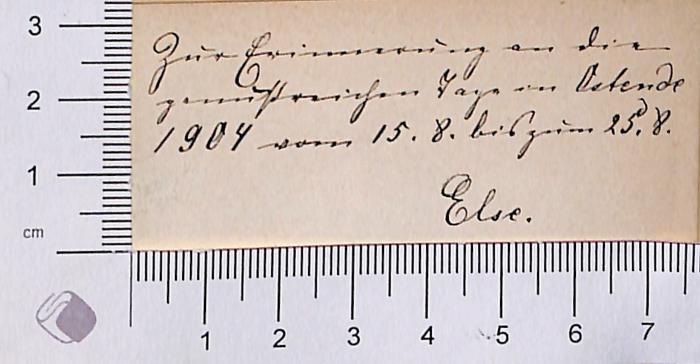 3
Zur Erinnerung an die
genußreichen Tage in Ostende
2
1904 vom 15. 8. bis zum 25. 8.
1
Else.
cm
1 2 3 4 5 6 7